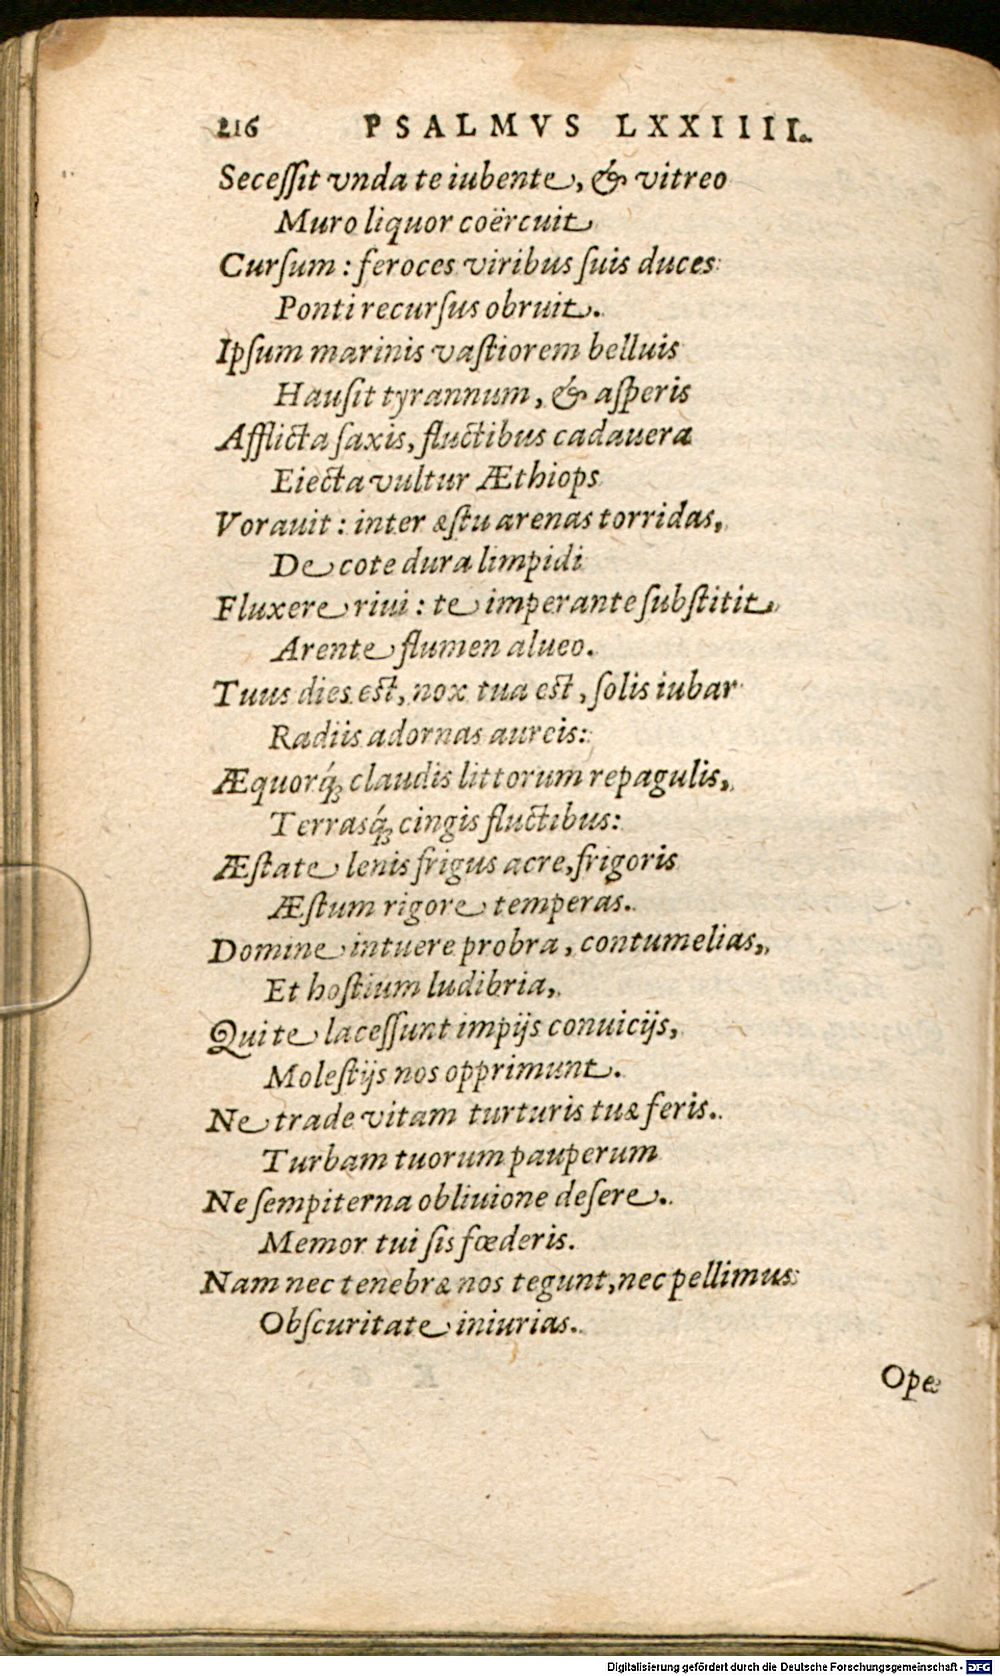 216 PSALMVS LXXIIII.
Secessit vnda te iubente, & vitreo
Muro liquor coërcuit
Cursum: feroces viribus suis duces
Ponti recursus obruit.
Ipsum marinis vastiorem belluis
Hausit tyrannum, & asperis
Afflicta saxis, fluctibus cadauera
Eiecta vultur Æthiops
Vorauit: inter æstu arenas torridas,
De cote dura limpidi
Fluxere riui: te imperante substitit
Arente flumen alueo.
Tuus dies est, nox tua est, solis iubar
Radiis adornas aureis:
Æquorq́; claudis littorum repagulis,
Terrasq́; cingis fluctibus:
Æstate lenis frigus acre, frigoris
Æstum rigore temperas.
Domine intuere probra, contumelias,
Et hostium ludibria,
Qui te lacessunt impijs conuicijs,
Molestijs nos opprimunt.
Ne trade vitam turturis tuæ feris.
Turbam tuorum pauperum
Ne sempiterna obliuione desere.
Memor tui sis fœderis.
Nam nec tenebræ nos tegunt, nec pellimus
Obscuritate iniurias.
Ope
Digitalisierung gefördert durch die Deutsche Forschungsgemeinschaft - DFG